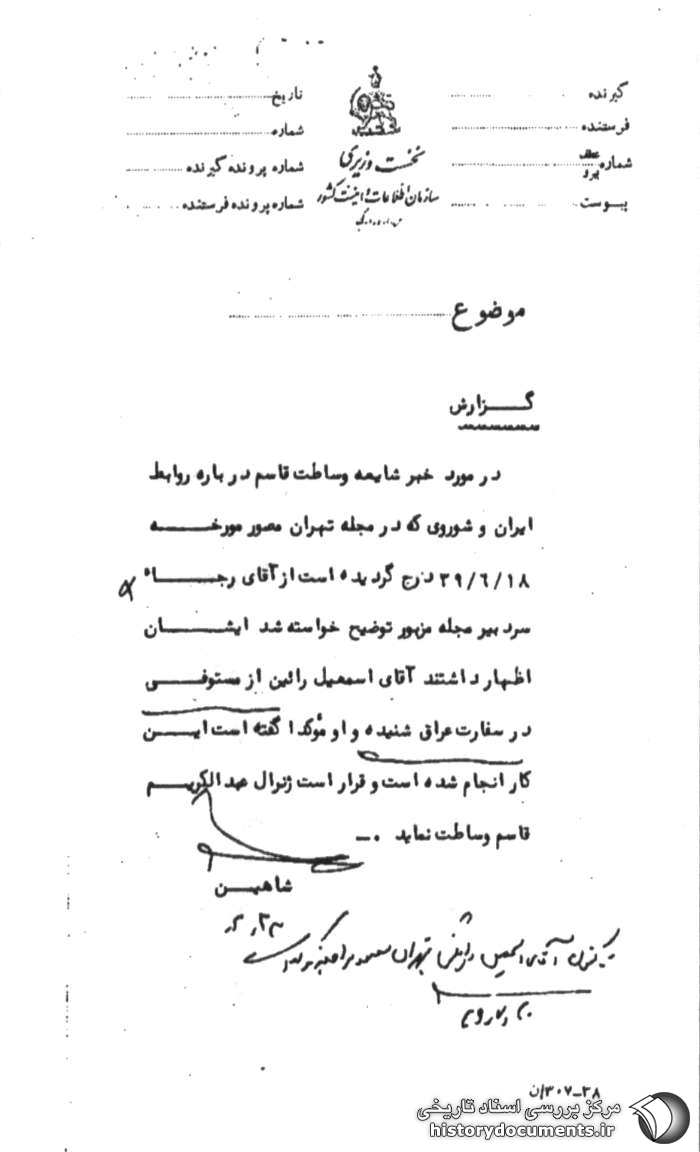 گیرنده
فرستنده
شماره عطف پیرو
پیوست
نخست وزیری
سازمان اطلاعات و امنیت کشور
س.ا.و.ا.ک
تاریخ
شماره
شماره پرونده گیرنده
شماره پرونده فرستنده
موضوع
گزارش
در مورد خبر شایعه وساطت قاسم درباره روابط
ایران و شوروی که در مجله تهران مصور مورخه
۳۹/۶/۱۸ درج گردیده است از آقای رجاء
سردبیر مجله مزبور توضیح خواسته شد ایشان
اظهار داشتند آقای اسمعیل رائین از مستوفی
در سفارت عراق شنیده و او مؤکدا گفته است این
کار انجام شده است و قرار است ژنرال عبدالکریم
قاسم وساطت نماید ۰ــ
شاهین
آقای
تهران
۳۰۷-۳۸/ن
مرکز بررسی اسناد تاریخی
historydocuments.ir